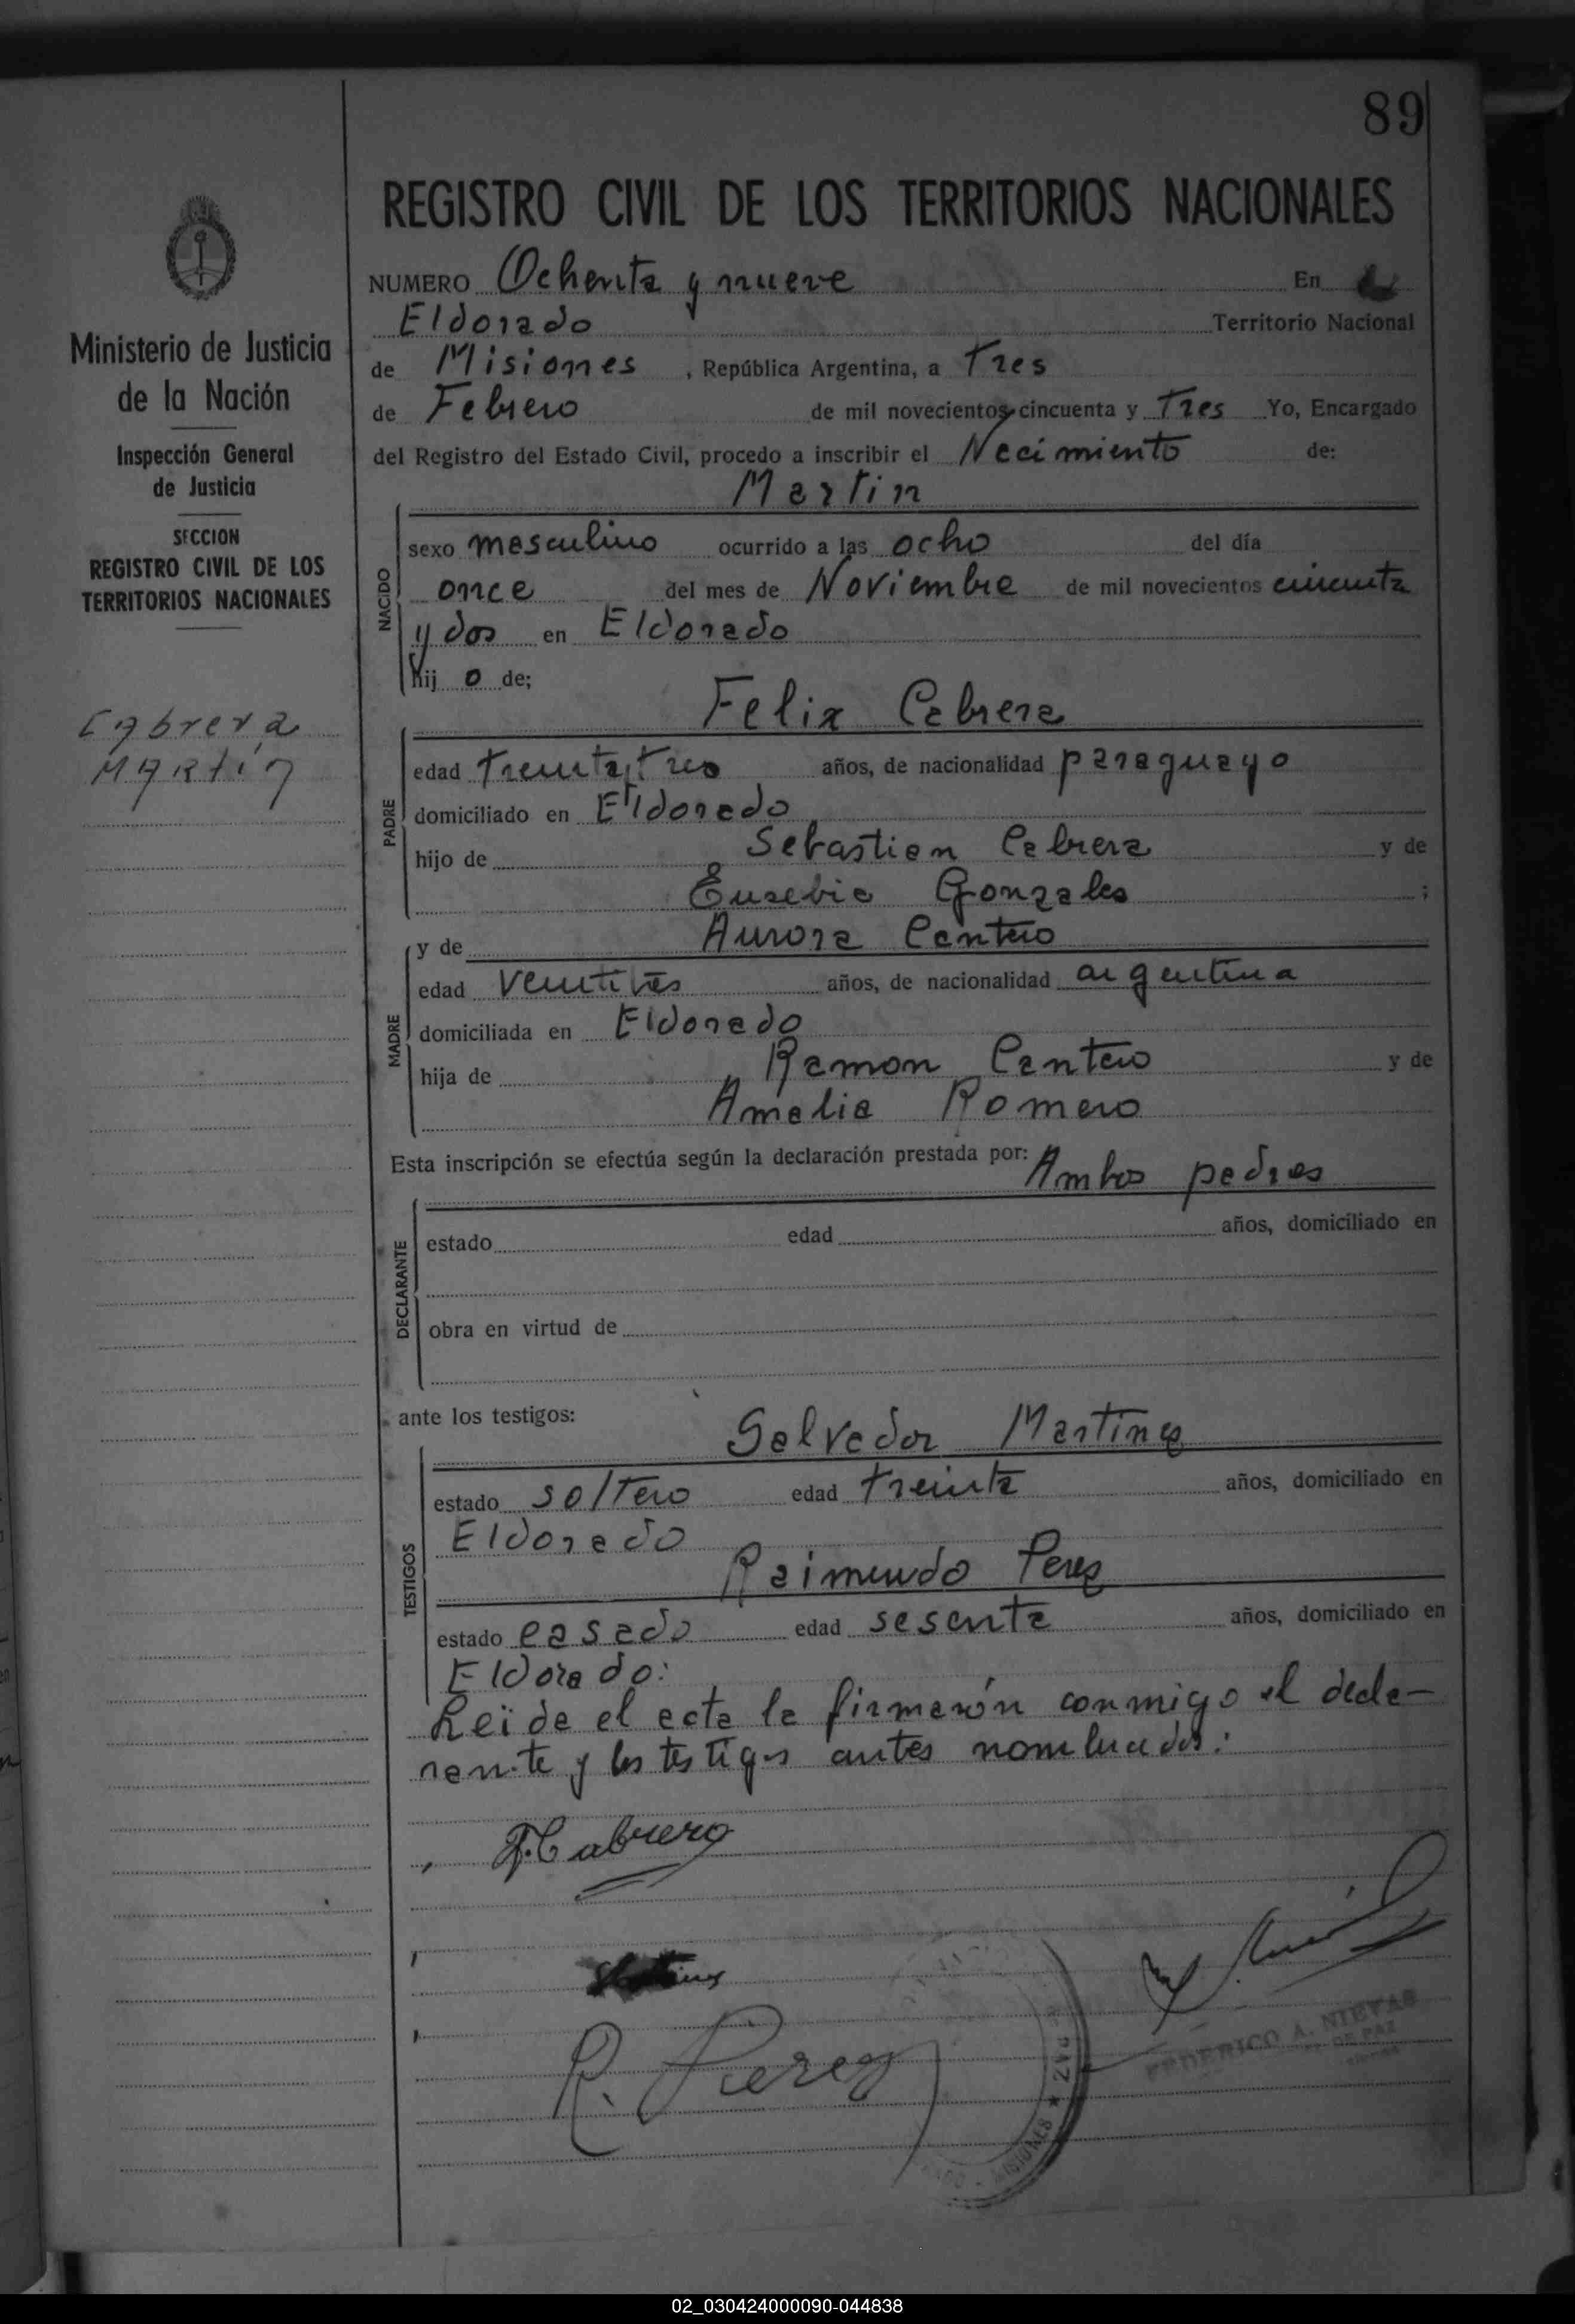 89
REGISTRO CIVIL DE LOS TERRITORIOS NACIONALES
NUMERO Ochenta y nueve En
Eldorado Territorio Nacional
de Misiones, República Argentina, a Tres
de Febrero de mil novecientos cincuenta y Tres Yo, Encargado
del Registro del Estado Civil, procedo a inscribir el Nacimiento de:
Martin
NACIDO
sexo masculino ocurrido a las ocho del día
once del mes de Noviembre de mil novecientos cincuenta
y dos en Eldorado
hijo de;
Felix Cabrera
PADRE
edad treinta, tres años, de nacionalidad paraguayo
domiciliado en Eldorado
hijo de Sebastian Cabrera y de
Eusebia Gonzales ;
MADRE
y de Aurora Cantero
edad veintitrés años, de nacionalidad argentina
domiciliada en Eldorado
hija de Ramon Cantero y de
Amalia Romero
Esta inscripción se efectúa según la declaración prestada por: Ambos padres
DECLARANTE
estado edad años, domiciliado en
obra en virtud de
ante los testigos:
Salvador Martinez
TESTIGOS
estado soltero edad treinta años, domiciliado en
Eldorado
Raimundo Perez
estado casado edad sesenta años, domiciliado en
Eldorado:
Leida el acta la firmarón conmigo el decla-
rante y los testigos antes nombrados:
F. Cabrera
R. Perez
FEDERICO A. NIEVAS
DE PAZ
PAZ ★
MISIONES
Ministerio de Justicia
de la Nación
Inspección General
de Justicia
SECCION
REGISTRO CIVIL DE LOS
TERRITORIOS NACIONALES
Cabrera
MARtín
02_030424000090-044838